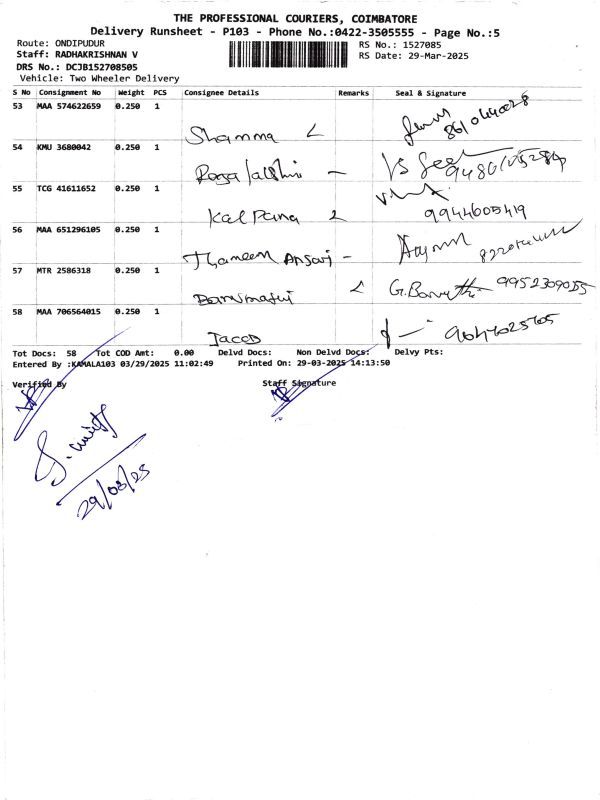 THE PROFESSIONAL COURIERS, COIMBATORE
Delivery Runsheet - P103 - Phone No.:0422-3505555 - Page No.:5
Route: ONDIPUDUR
RS No.: 1527085
Staff: RADHAKRISHNAN V
RS Date: 29-Mar-2025
DRS No.: DCJB152708505
Vehicle: Two Wheeler Delivery
S No Consignment No Weight PCS Consignee Details Remarks Seal & Signature
53 MAA 574622659 0.250 1
Shamma
54 KMU 3680042 0.250 1
55 TCG 41611652 0.250 1
Kalpana 9944605419
56 MAA 651296105 0.250 1
Thameem Ansari -
57 MTR 2586318 0.250 1
58 MAA 706564015 0.250 1
Jacob
Tot Docs: 58 Tot COD Amt: 0.00 Delvd Docs: Non Delvd Docs: Delvy Pts:
Entered By :KAMALA103 03/29/2025 11:02:49 Printed On: 29-03-2025 14:13:50
Verified By Staff Signature